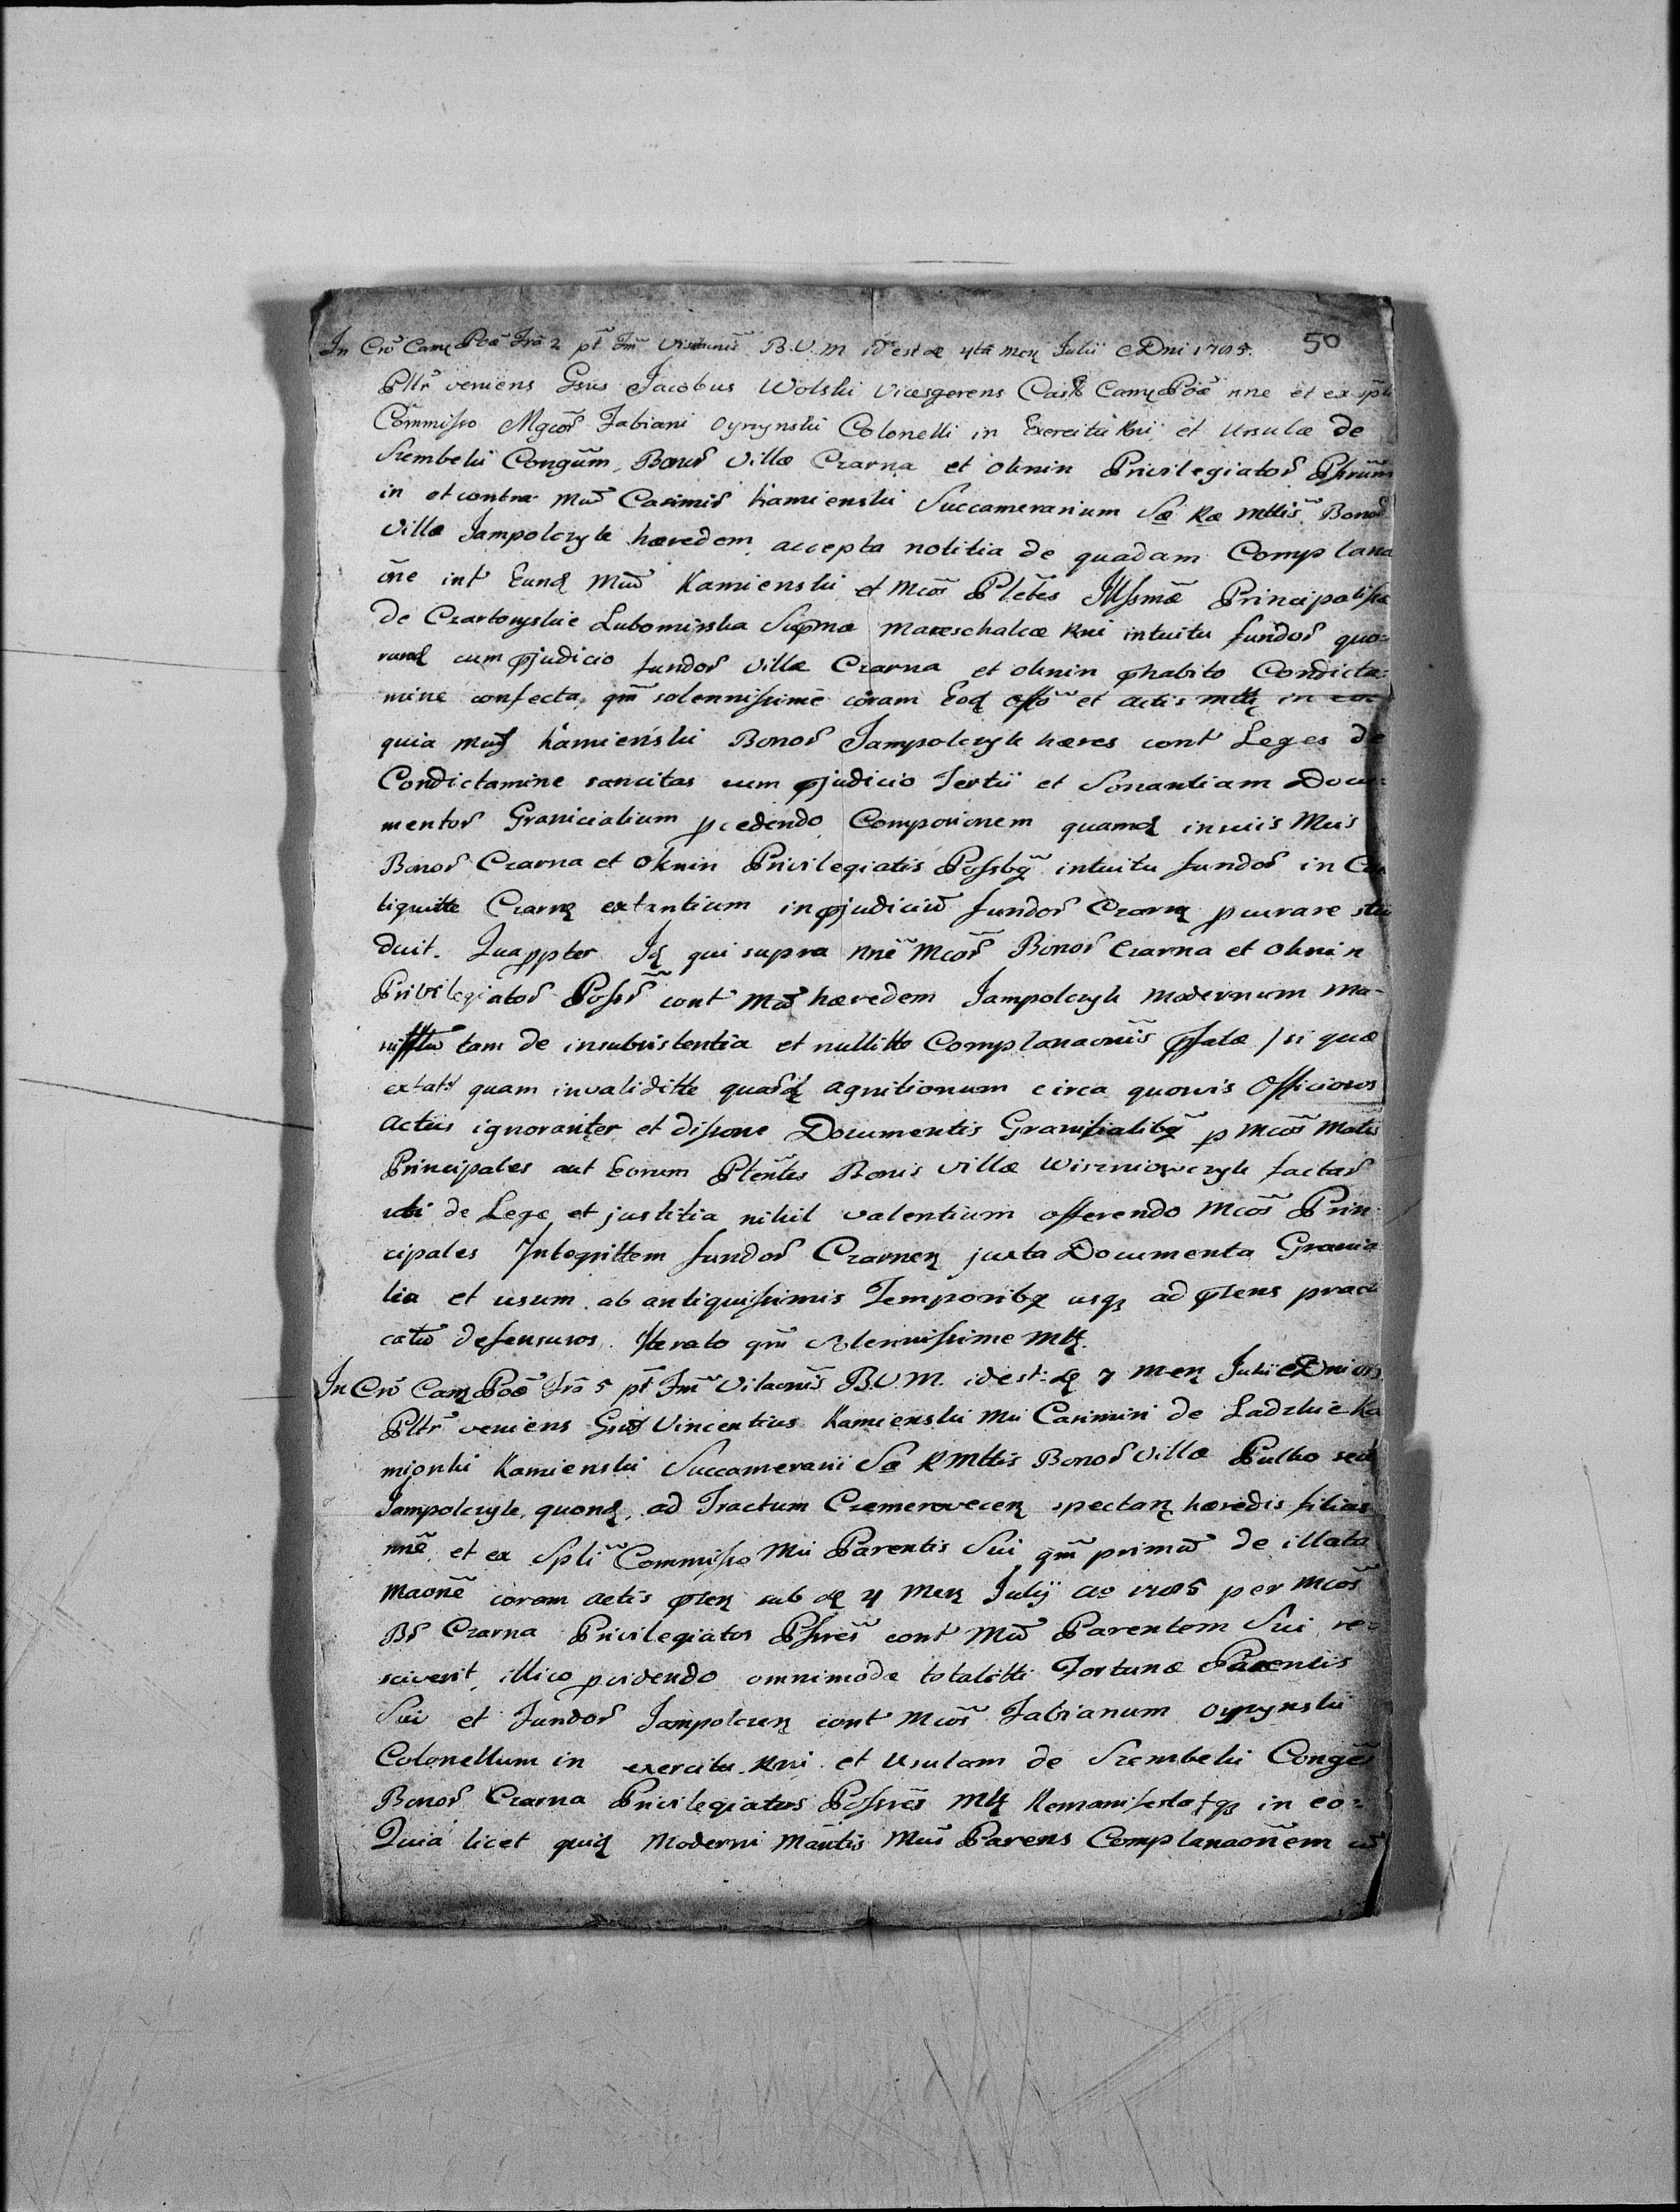 50
In Crō Camꝫ Poā Fra 2 pt Fm Visitaonis B. V. M id est ꝺ 4ta men Julii ADni 1785.
Pltr veniens Gsus Jacobus Wolski Vicesgerens Cas Camꝫ Poē nne et ex spli
Commisso Mgcor Fabiani Oyrzynski Colonelli in Exercitu Rni et Ursulæ de
Szembeki Congum, Bonor Villæ Czarna et Oknin Privilegiator Pssrum
in et contra Mum Casimir Kamienski Succamerarium Sæ Ræ Mttis Bonor
Villæ Jampolczyk hæredem, accepta notitia de quadam Complana
one int Eund Mum Kamienski et Mcos Pletes Illsmæ Principalissæ
de Czartoryskie Lubomirska Supmæ Mareschalcæ Rni intuitu fundor quo=
rund cum pjudicio fundor Villæ Czarna et Oknin phabito Condicta:
mine confecta, qm solennissime coram Eod Offo et Actis mttꝫ in eo:
quia Mus Kamieński Bonor Jampolczyk hæres cont Leges de
Condictamine sancitas cum pjudicio Tertii et Sonantiam Docu:
mentor Granicialium pcedendo, Componem quamd inviis Mcis
Bonor Czarna et Oknin Privilegiatis Possbꝫ intuitu fundor in
tiguitte Czarnꝫ extantium in pjudicium fundor Czarnꝫ pcurare stu
duit. Quappter Id qui supra nne Mcor Bonor Czarna et Oknin
Privilegiator Possr cont Mum hæredem Jampolczyk modernum ma-
nifttur tam de insubsistentia et nullitte Complanaonis pfatæ / si quæ
extat / quam invaliditte quard agnitionum circa quovis Officiosos
Actus ignoranter et dissone Documentis Granicialibꝫ p Mcos
Principales aut Eorum Pletes Bonis Villæ Wiszniowczyk factar
uti de Lege et justitia nihil valentium offerendo Mcos Prin
cipales Integrittem fundor Czarnen juxta Documenta Grania
lia et usum ab antiquissimis Temporibꝫ usqꝫ ad ptens practi
catum defensuros. Iterato qm solennissime mttꝫ.
In Crō Camꝫ Poā Fra 5 pt Fm Vitaonis B. V. M. id est: ꝺ 7 Men Julii
Pltr veniens Gsus Vincentius Kamienski Mci Casimiri de Ladzkie Ka
mionki Kamienski Succamerarii Sæ R Mttis Bonor Villæ Pulko seu
Jampolczyk, quond, ad Tractum Czemerowecen spectan hæredis filius
nne et ex Spli Commisso Mci Parentis Sui qm primum de illata
maone coram Actis pten sub ꝺ 4 Men Julij Ao 1785 per Mcos
Br Czarna Privilegiatos Pssres cont Mum Parentem Sui re=
sciverit, illico pvidendo omnimodæ totalitti Fortunæ Parentis
Sui et Fundor Jampolczen cont Mcos Fabianum Oyrzynski
Colonellum in exercitu Rni et Usulam de Szembeki Conges
Bonor Czarna Privilegiatos Possres mttꝫ Remanifestatqꝫ in eo:
Quia licet quid Moderni Mantis Mus Parens Complanaonem